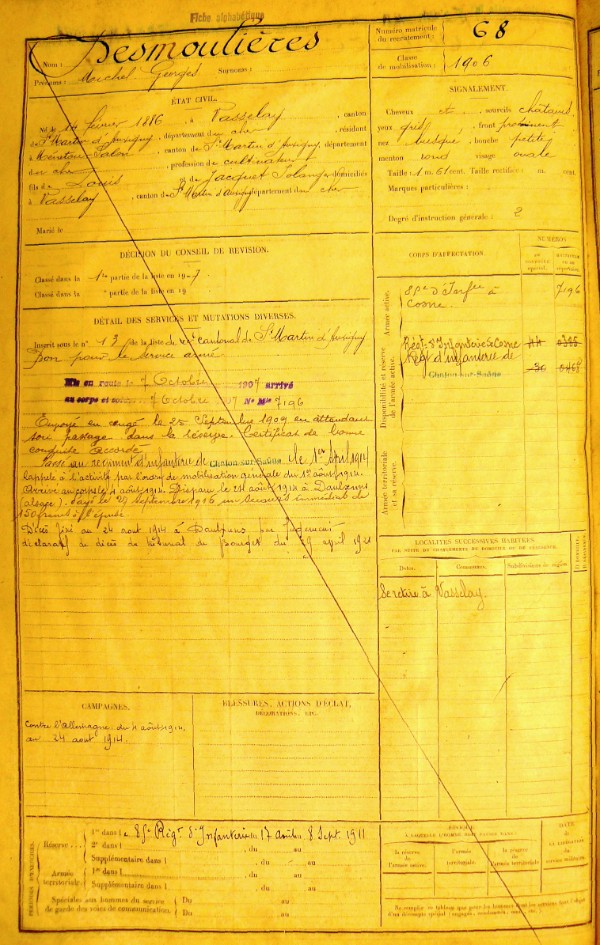 Fiche alphabétique
Nom : Desmoulières
Prénoms : Michel Georges Surnoms :
Numéro matricule du recrutement : 68
Classe de mobilisation : 1906
ÉTAT CIVIL.
Né le 14 février 1886, à Vasselay, canton
de St Martin d'Auxigny, département du cher, résidant
à Menetou-Salon, canton de St Martin d'Auxigny, département
du cher, profession de cultivateur
fils de Louis et de Jacquet Solange domiciliés
à Vasselay, canton de St Martin d'Auxigny département du cher
Marié le
SIGNALEMENT.
Cheveux et sourcils châtains
yeux gris, front proéminent
nez busqué, bouche petite
menton rond visage ovale
Taille : 1 m. 61 cent. Taille rectifiée : m. cent
Marques particulières :
Degré d'instruction générale : 2
DÉCISION DU CONSEIL DE REVISION.
Classé dans la 1re partie de la liste en 1907.
Classé dans la partie de la liste en 19
DÉTAIL DES SERVICES ET MUTATIONS DIVERSES.
Inscrit sous le n° 12 de la liste du cantonal de St Martin d'Auxigny
Bon pour le service armé
Mis en route le 7 Octobre 1907 arrivé
au corps et 7 Octobre 1907 No Mle 7196
Envoyé en congé le 25 Septembre 1909 en attendant
son passage dans la réserve. Certificat de bonne
conduite accordé
Passé au régiment d'infanterie de Chalon-sur-Saône le 1er Avril 1914
Rappelé à l'activité par l'ordre de mobilisation générale du 1er août 1914.
Arrivé au corps le 4 août 1914. Disparu le 24 août 1914 à
(alsace). Payé le 29 Septembre 1916 un secours immédiat de
150 francs à l'épouse
Décès fixé au 24 août 1914 à par Jugement
déclaratif de décès du tribunal de Bourges du 29 april 1921
CORPS D'AFFECTATION.
NUMÉROS
au contrôle spécial.
Armée active.
85e d'Infrie à
Cosne
7196
Disponibilité et réserve de l'armée active.
Régt d'Infanterie de Cosne
Régt d'infanterie de
Chalon-sur-Saône
Armée territoriale et sa réserve.
LOCALITÉS SUCCESSIVES HABITÉES
PAR SUITE DE CHANGEMENTS DE DOMICILE OU DE RÉSIDENCE.
Dates. Communes. Subdivisions de région.
Se retire à Vasselay.
CAMPAGNES.
Contre l'Allemagne du 4 août 1914
au 24 août 1914.
BLESSURES, ACTIONS D'ÉCLAT,
DÉCORATIONS, ETC.
PÉRIODES D'EXERCICES.
Réserve... 1re dans le 85e Régt d'Infanterie du 17 août au 8 Sept. 1911
2e dans l , du au
Supplémentaire dans l , du au
Armée territoriale : 1re dans l , du au
Supplémentaire dans l , du au
Spéciales aux hommes du service
de garde des voies de communication. Du au
Du au
ÉPOQUE
À LAQUELLE L'HOMME DOIT PASSER DANS :
la réserve de l'armée active.
l'armée territoriale.
la réserve de l'armée territoriale.
DATE
de
LA LIBÉRATION
du
service militaire.